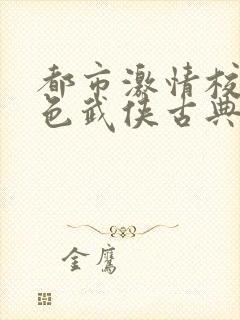 都市激情校
色武侠古典
金鹰